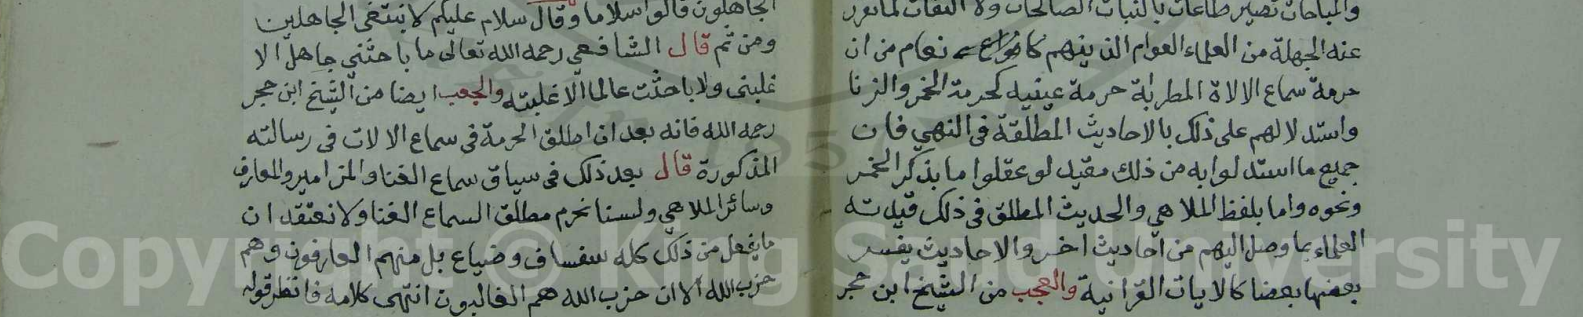 والمباحات تصير طاعات بالنيات الصالحات ولا التفات لما تورد
عنه الجهلة من العلماء العوام الذينهم كا نعام من ان
حرمة سماع الالاة المطربة حرمة عينيه كحرمة الخمر والزنا
واستدلالهم على ذلك بالاحاديث المطلقة في النهي فان
جميع ما استدلوا به من ذلك مقيد لو عقلوا ما بذكر الخمر
ونحوه واما بلفظ الملاهي والحديث المطلق في ذلك قيدته
العلماء بما وصل اليهم من احاديث اخر والاحاديث يفسر
بعضها بعضا كالايات القرانية والعجب من الشيخ ابن حجر
الجاهلون قالوا سلاما وقال سلام عليكم لا نبتغي الجاهلين
ومن ثم قال الشافعي رحمه الله تعالى ما باحثني جاهل الا
غلبني ولا باحثت عالما الا غلبته والعجب ايضا من الشيخ ابن حجر
رحمه الله فانه بعد ان اطلق الحرمة في سماع الالات في رسالته
المذكورة قال بعد ذلك في سياق سماع الغنا والمزامير والمعازف
وسائر الملاهي ولسنا نحرم مطلق السماع الغنا ولا نعتقد ان
ما يفعل من ذلك كله سفساف وضياع بل منهم العارفون وهم
حزب الله الا ان حزب الله هم الغالبون انتهى كلامه فانظر قوله
Copyright © King Saud University